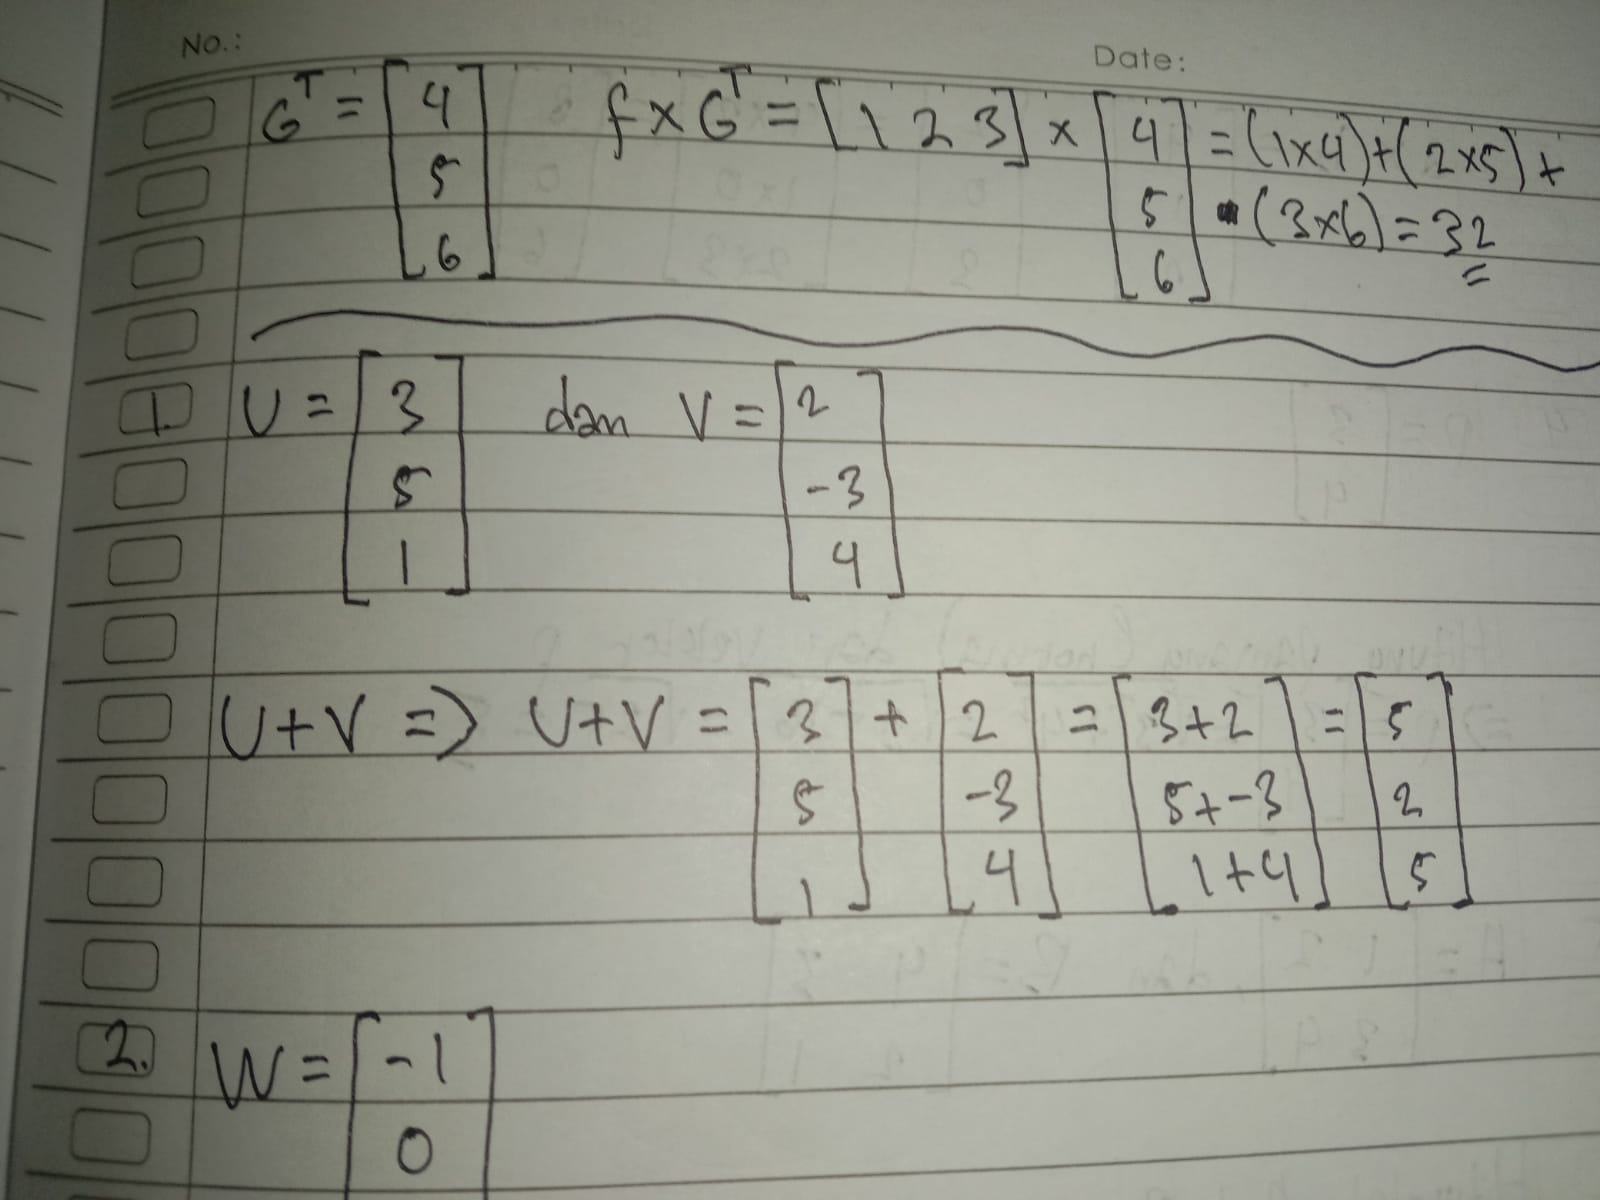 No.: Date:
G^T = [4 5 6] f x G^T = [1 2 3] x [4 5 6] = (1x4)+(2x5)+
(3x6) = 32
1. U = [3 5 1] dan V = [2 -3 4]
U+V => U+V = [3 5 1] + [2 -3 4] = [3+2 5+-3 1+4] = [5 2 5]
2. W = [-1 0